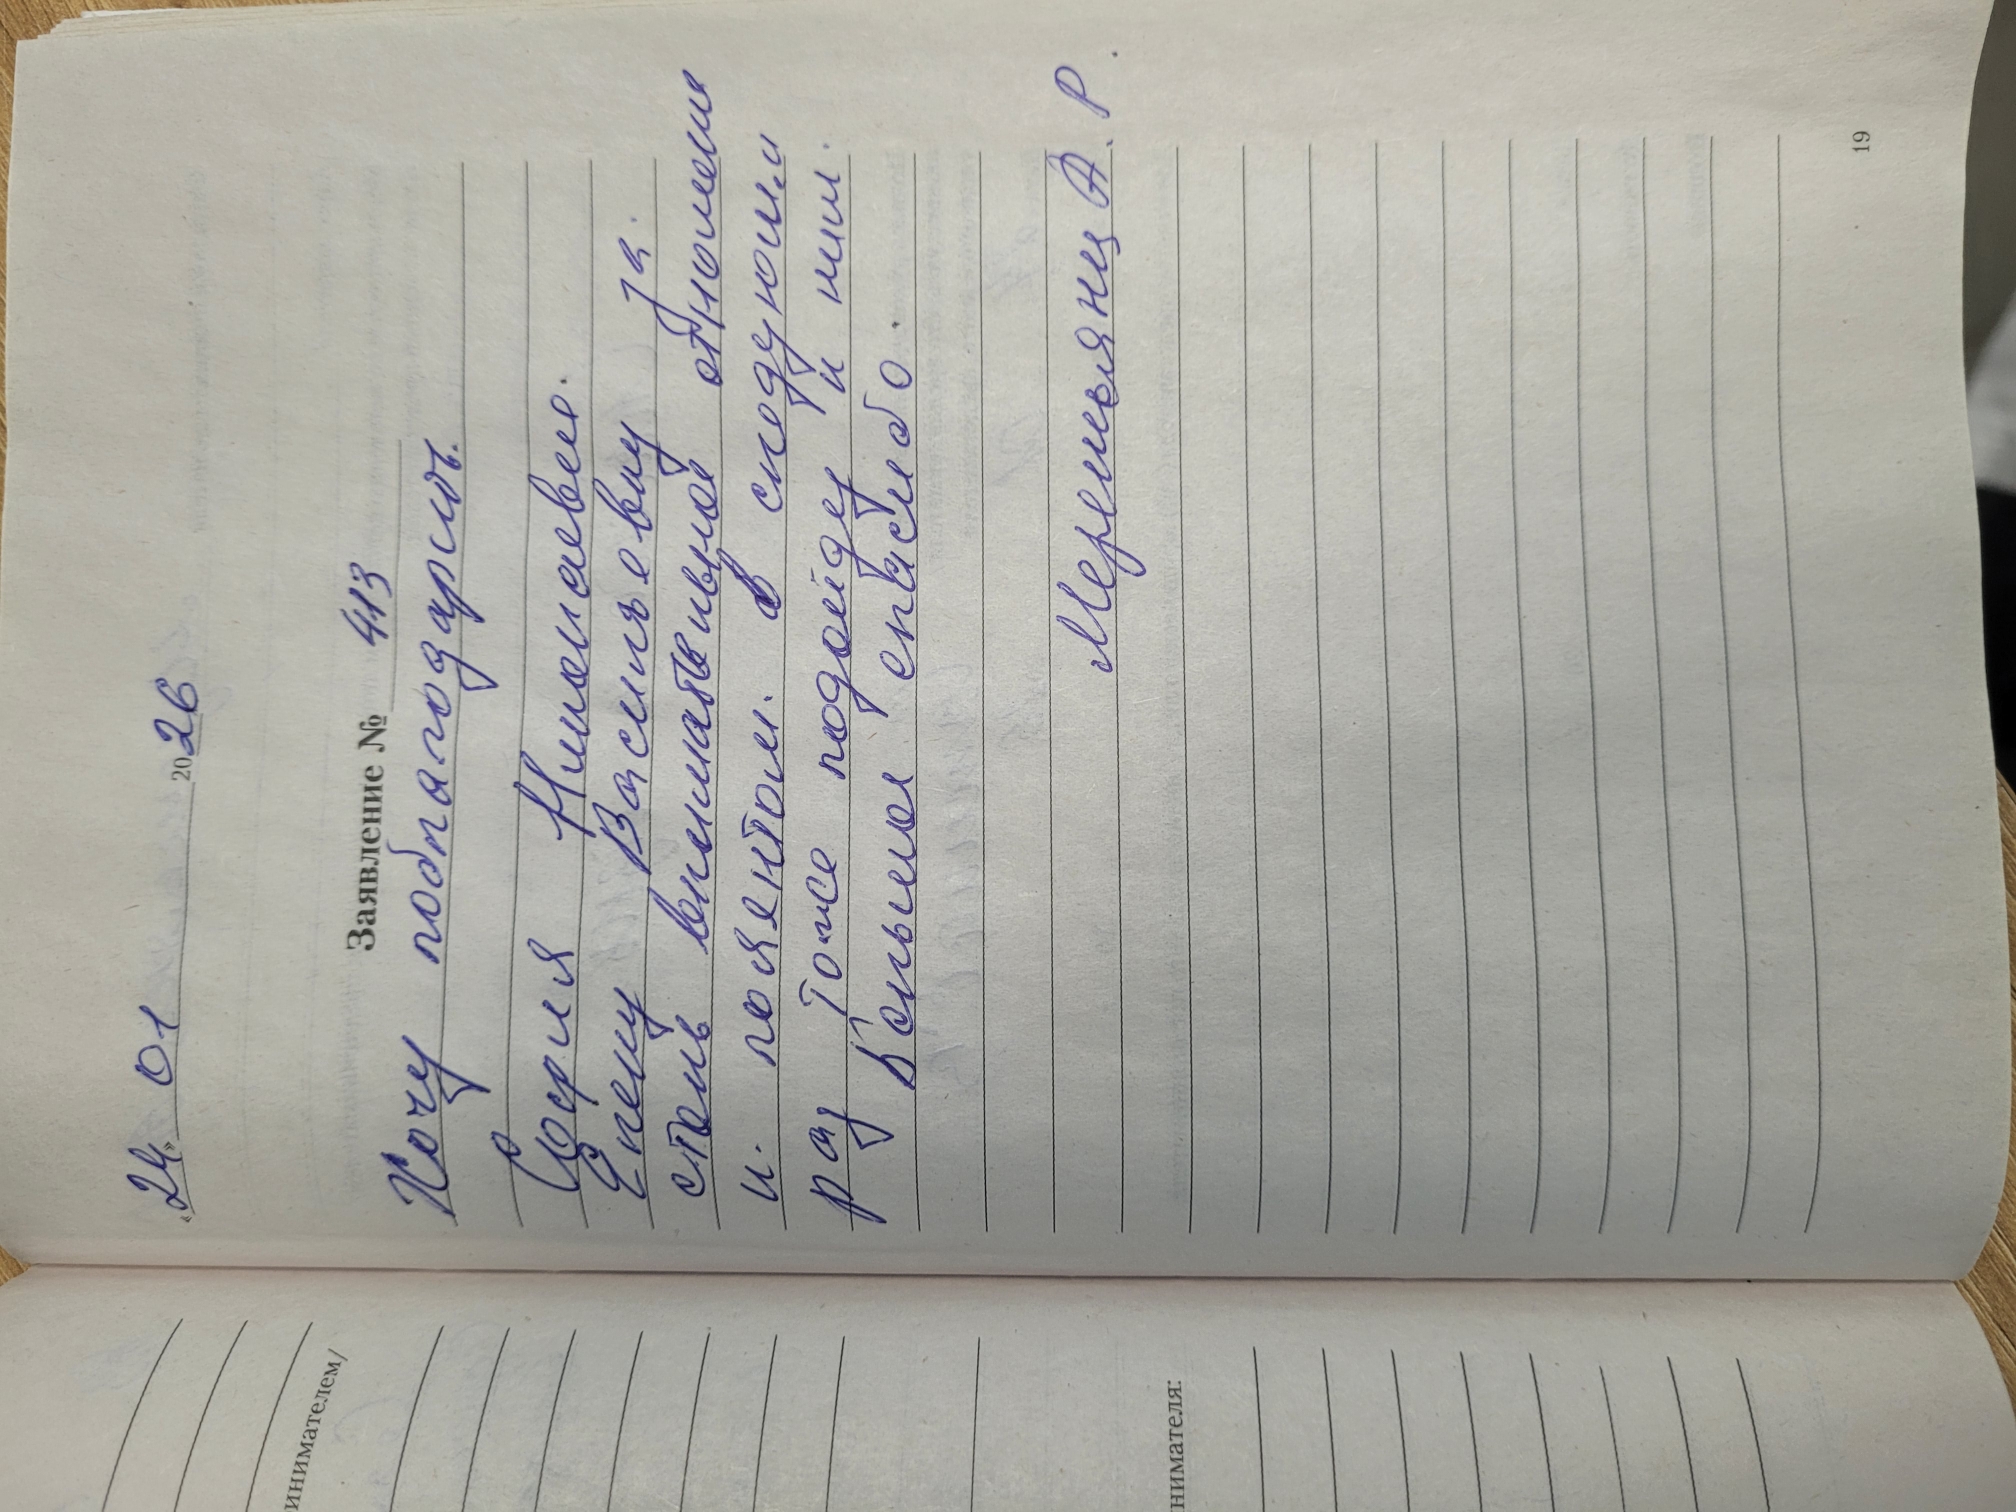 «24» 01 2026
Заявление № 413
Хочу поблагодарить.
София Николаевне.
Елену Васильевну за.
стль внимательное отношение
и. поентом. в следующий
раз Тоже подойду к ним.
Большое спасибо.
Мерешьянц А. Р.
19
инимателем/
нимателя: